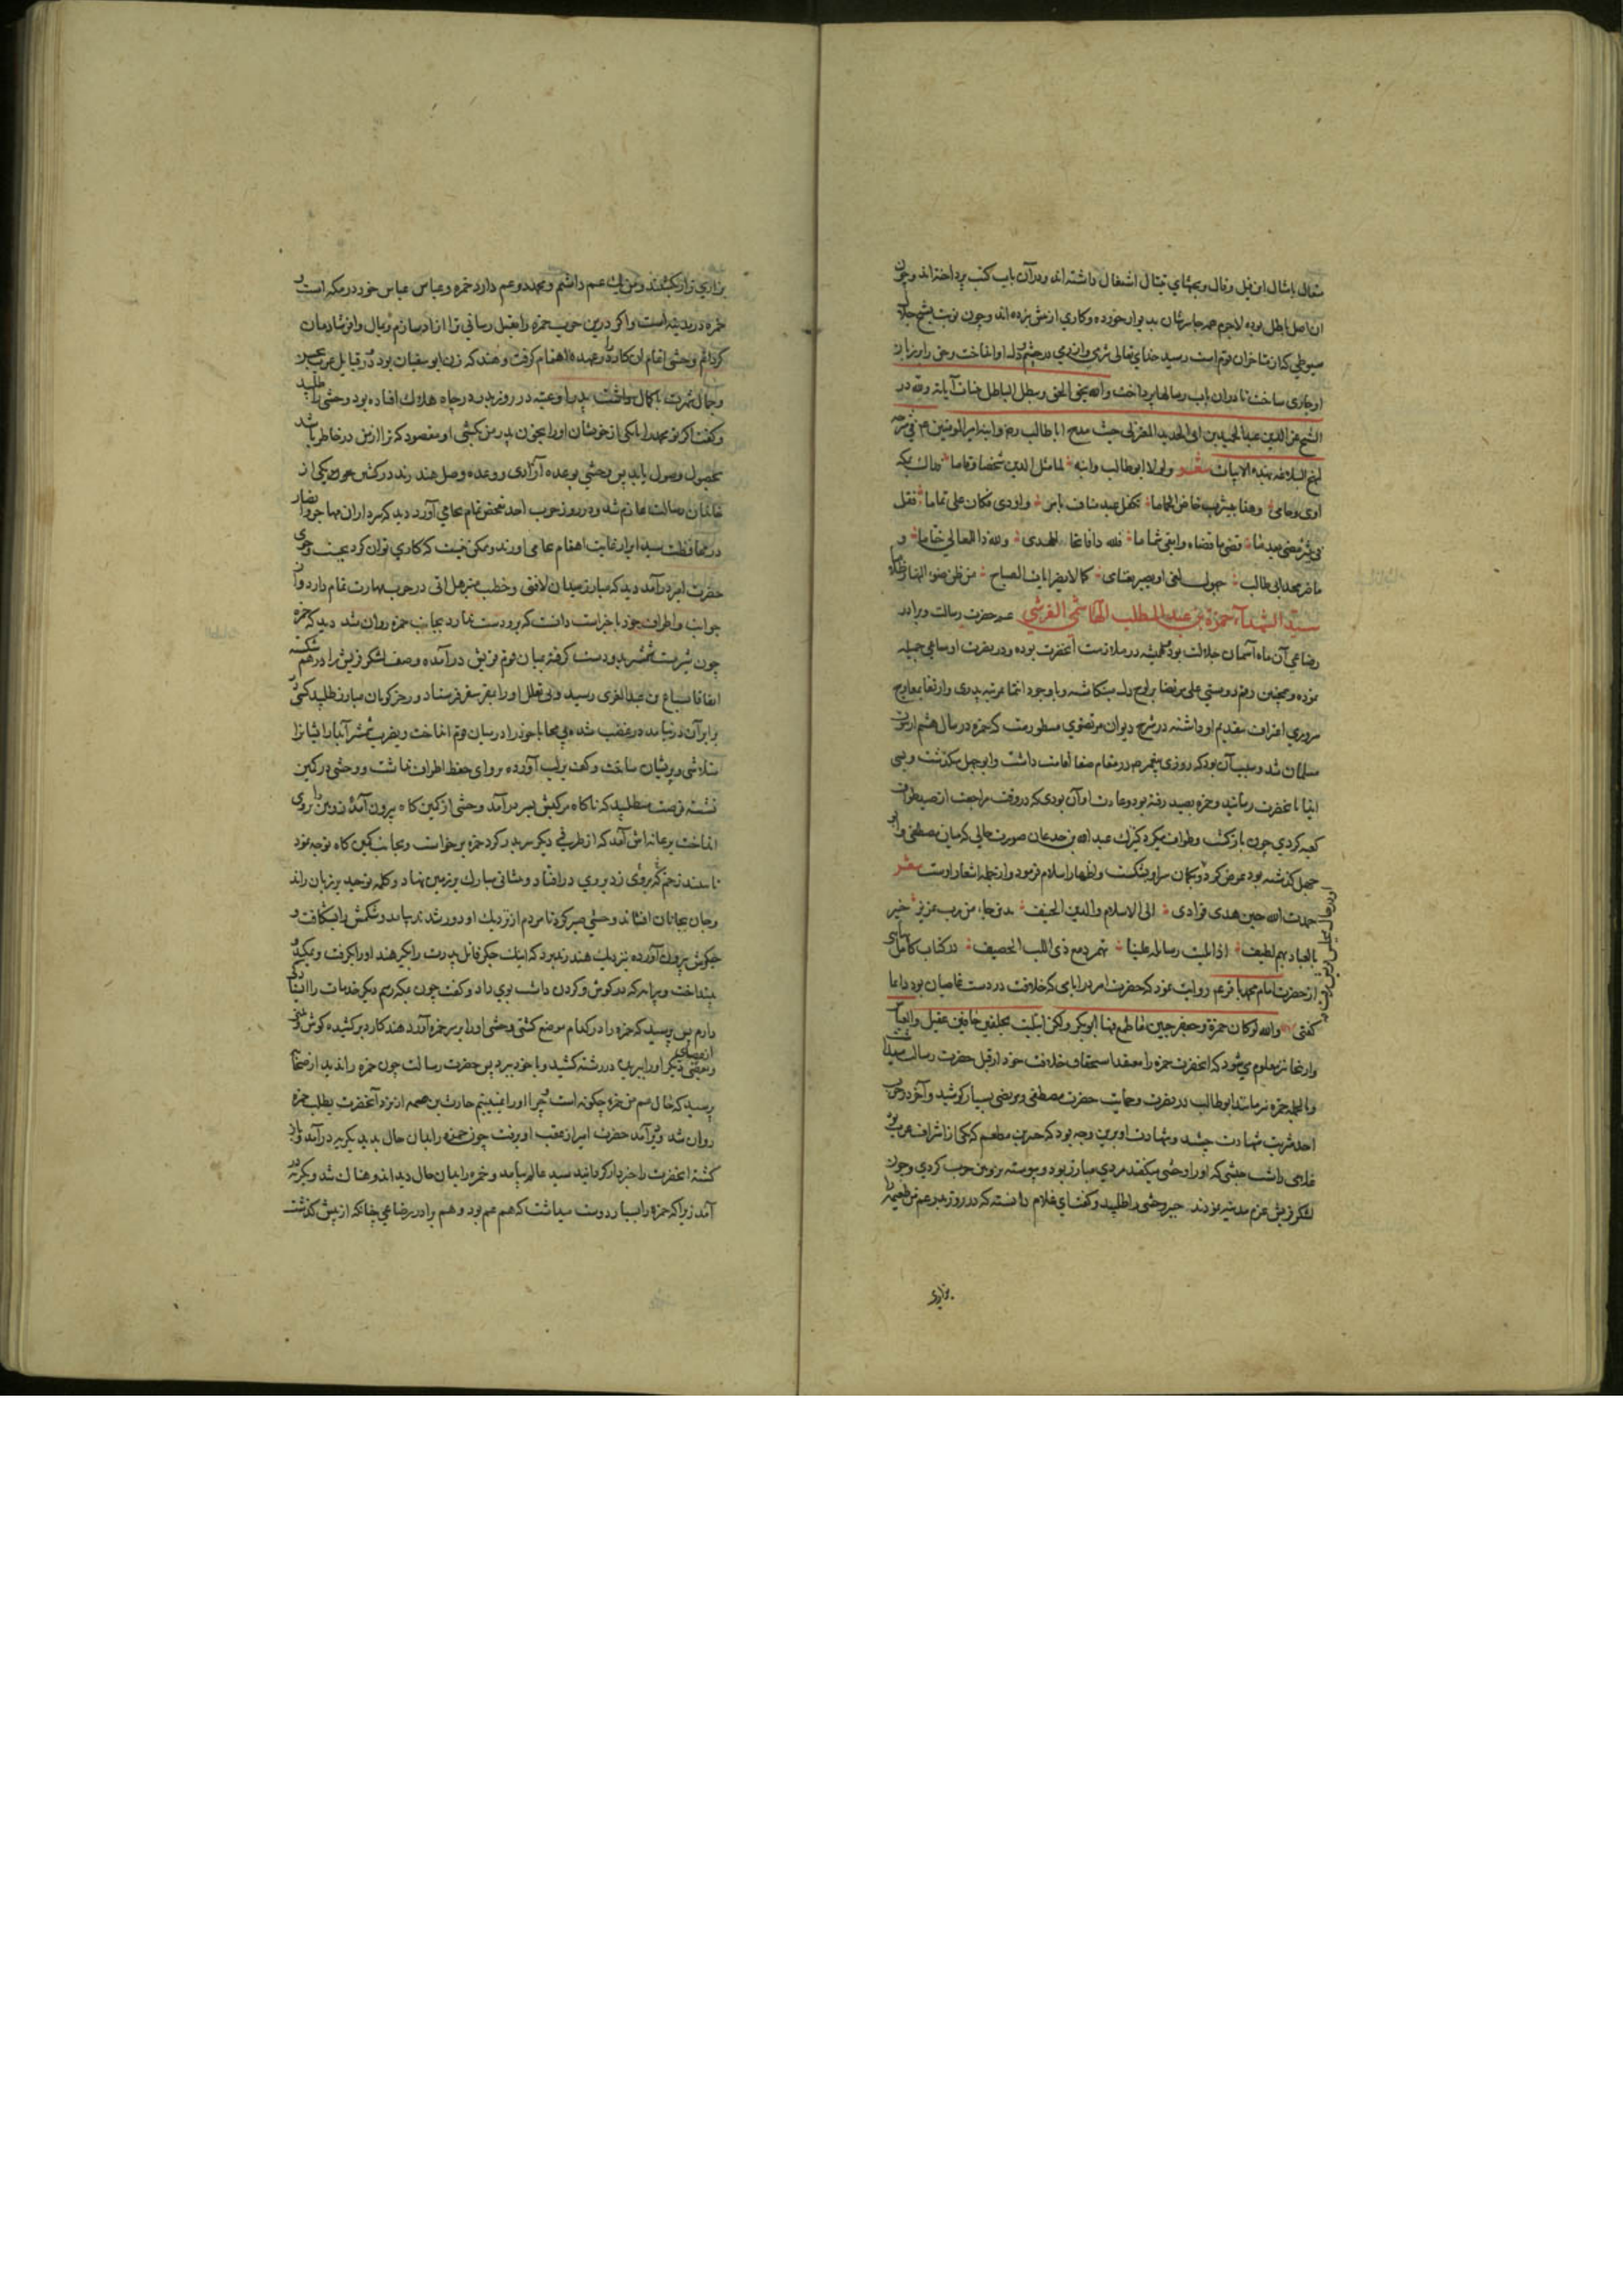 متعال بامثال این قیل و قال و بحثهای قتال اشتغال داشته اند و در آن باب کتب پرداخته اند و چون
ان اصل باطل بوده لاجرم همه جا سرشان بدیوار خورده و کاری از پیش نبرده اند و چون نوبت بشیخ جلال
سیوطی که از متاخران قوم است رسید خدای تعالی در دل او انداخت و حق را بر زبان
او جاری ساخت تا در ان باب رسالها پرداخت والله یحق الحق و یبطل الباطل ولله در
الشیخ عز الدین عبد الحمید بن ابی الحدید المعتزلی حیث مدح ابا طالب رض و ابنه امیر المومنین عم فی شرحه
لنهج البلاغه بهذه الابیات شعر ولولا ابو طالب وابنه لما مثل الدین شخصا وقاما فذاك بمکه
اوی وحامی وهذا بیثرب خاض الحماما تکفل عبد مناف بامر واودی فکان علی تماما فقل
فی ثبیر مضی بعد ما قضی ما قضاه وابقی شماما فلله ذا فاتحا للهدی ولله ذا للمعالی ختاما و
ما ضر مجد ابی طالب جهول لغی او بصیر تعامی کما لا یضر ایاة الصباح من ظن ضوء النهار ظلاما
سید الشهداء حمزة بن عبد المطلب الهاشمی القرشی عم حضرت رسالت و برادر
رضاعی آن ماه آسمان جلالت بود همیشه در ملازمت آنحضرت بوده و در نصرت او مساعی جمیله
نموده و همچنین رقم دوستی علی مرتضا بر لوح دل مینگاشته و با وجود انتما بمرتبه پدری و ارتقا بمعارج
سروری اعتراف بتقدیم او داشته در شرح دیوان مرتضوی مسطورست که حمزه در سال هشتم از نبوت
مسلمان شد و سبب آن بود که روزی پیغمبر ص در مقام صفا اقامت داشت و ابو جهل بگذشت و بسی
ایذا بآنحضرت رسانید و حمزه بصید رفته بود و عادت او آن بودی که در وقت مراجعت از صید طواف
کعبه کردی چون باز گشت و طواف میکرد کنیزك عبد الله بن جدعان صورت حالی که میان مصطفی و ابو
جهل گذشته بود عرض کرد و بکمان سر او بشکست و اظهار اسلام فرمود و از جمله اشعار اوست شعر
حمدت الله حین هدی فؤادی الی الاسلام والدین الحنیف لدین جاء من رب عزیز خبیر
بالعباد بهم لطیف اذا تلیت رسائله علینا تحدر دمع ذی اللب الحصیف در کتاب کامل بهایی
از حضرت امام محمد باقر عم روایت نموده که حضرت امیر در ایامی که خلافت در دست غاصبان بود دایما
گفتی والله لو کان حمزة وجعفر حیین ما طمع فیها ابو بکر ولکن ابتلیت بجلفین جافیین عقیل والعباس
و ازینجا نیز معلوم می شود که آنحضرت حمزه را معتقد استحقاق خلافت خود از قبل حضرت رسالت میدانسته
و بالجمله حمزه نیز مانند ابو طالب در نصرت و حمایت حضرت مصطفی و مرتضی بسیار کوشید و آخر در حرب
احد شربت شهادت چشید و شهادت او برین وجه بود که جبیر بن مطعم که یکی از اشراف عرب بود
غلامی داشت حبشی که او را وحشی میگفتند مردی مبارز بود و پیوسته بزوبین حرب کردی و چون
لشکر قریش عزم مدینه نمودند جبیر وحشی را طلبید و گفت ای غلام دانسته که در روز بدر عم من طعیمه را
بزاری زار بکشتند و من یك عم داشتم و محمد دو عم دارد حمزه و عباس عباس خود در مکه است و
حمزه در مدینه است و اگر درین حرب حمزه را بقتل رسانی ترا ازاد سازم و بمال وافر شادمان
گردانم وحشی اتمام ان کار را در عهده اهتمام گرفت و هند که زن ابو سفیان بود و در قبایل عرب بحسن
و جمال شهرت با کمال داشت پدر او عتبه در روز بدر در چاه هلاك افتاده بود وحشی را طلبید
و گفت اگر تو محمد را یا یکی از خویشان او را بخون پدر من بکشی هر مقصود که ترا از من در خاطر باشد
بحصول وصول یابد پس وحشی بوعده آزادی و وعده وصل هند در کشتن یکی از
خاندان رسالت عازم شد و در روز حرب احد تفحص تمام بجای آورد دید که سرداران مهاجر و انصار
در محافظت سید ابرار بغایت اهتمام بجای اورند و ممکن نیست که کاری توان کرد بجست و جوی
حضرت امیر درآمد دید که مبارز میدان لافتی و خطیب منبر هل اتی در حرب مهارت تمام دارد و از
جوانب و اطراف خود با خبر است دانست که برو دست ندارد بجانب حمزه روان شد دید که حمزه
چون شیر مست شمشیر بدو دست گرفته میان قوم قریش درآمده و صف لشکر قریش را در هم شکسته
اتفاقا سباع بن عبد العزی رسید و بی تعلل او را بقعر سقر فرستاد و رجز گویان مبارز طلبید کسی
برابر آن در نیامده در غضب شده بی محابا خود را در میان قوم انداخت و بضرب شمشیر آبدار ایشان را
متلاشی و پریشان ساخت و کف بر لب آورده پروای حفظ اطراف نداشت و وحشی در کمین
نشسته فرصت میطلبید که ناگاه مرکبش بسر درآمد وحشی از کمین گاه بیرون آمده زوبین را بروی
انداخت بر عانه اش آمد که از طرف دیگر سر بدر کرد حمزه برخواست و بجانب کمین گاه توجه نمود
و جان بجانان افشاند وحشی صبر کرد تا مردم از نزدیك او دور شدند بیامد و شکمش را بشکافت و
جگرش بیرون آورده نزدیك هند برد که اینك جگر قاتل پدرت را بگیر هند او را بگرفت و بمکید و
بینداخت و پیرایه که در گوش و گردن داشت بوی داد و گفت چون بمکه رسیم دیگر خدمات
دارم پس پرسید که حمزه را در کدام موضع کشتی وحشی او را بر سر حمزه آورد هند کارد بر کشیده گوش و بینی
و بعضی دیگر از اعضای او را ببرید و در رشته کشید و با خود ببرد پس حضرت رسالت چون حمزه را ندید از صحابه
پرسید که حال عم من حمزه چگونه است چرا او را نمی بینم حارث بن صمه از نزد آنحضرت بطلب حمزه
روان شد و دیر آمد حضرت امیر از عقب او برفت چون حمزه را بدان حال بدید بگریه درآمد و باز
گشته انحضرت را خبردار گردانید سید عالم بیامد و حمزه را بدان حال دید اندوهناك شد و بگریه در
آمد زیرا که حمزه را بسیار دوست میداشت که هم عم بود و هم برادر رضاعی چنانکه از پیش گذشت
بزاری